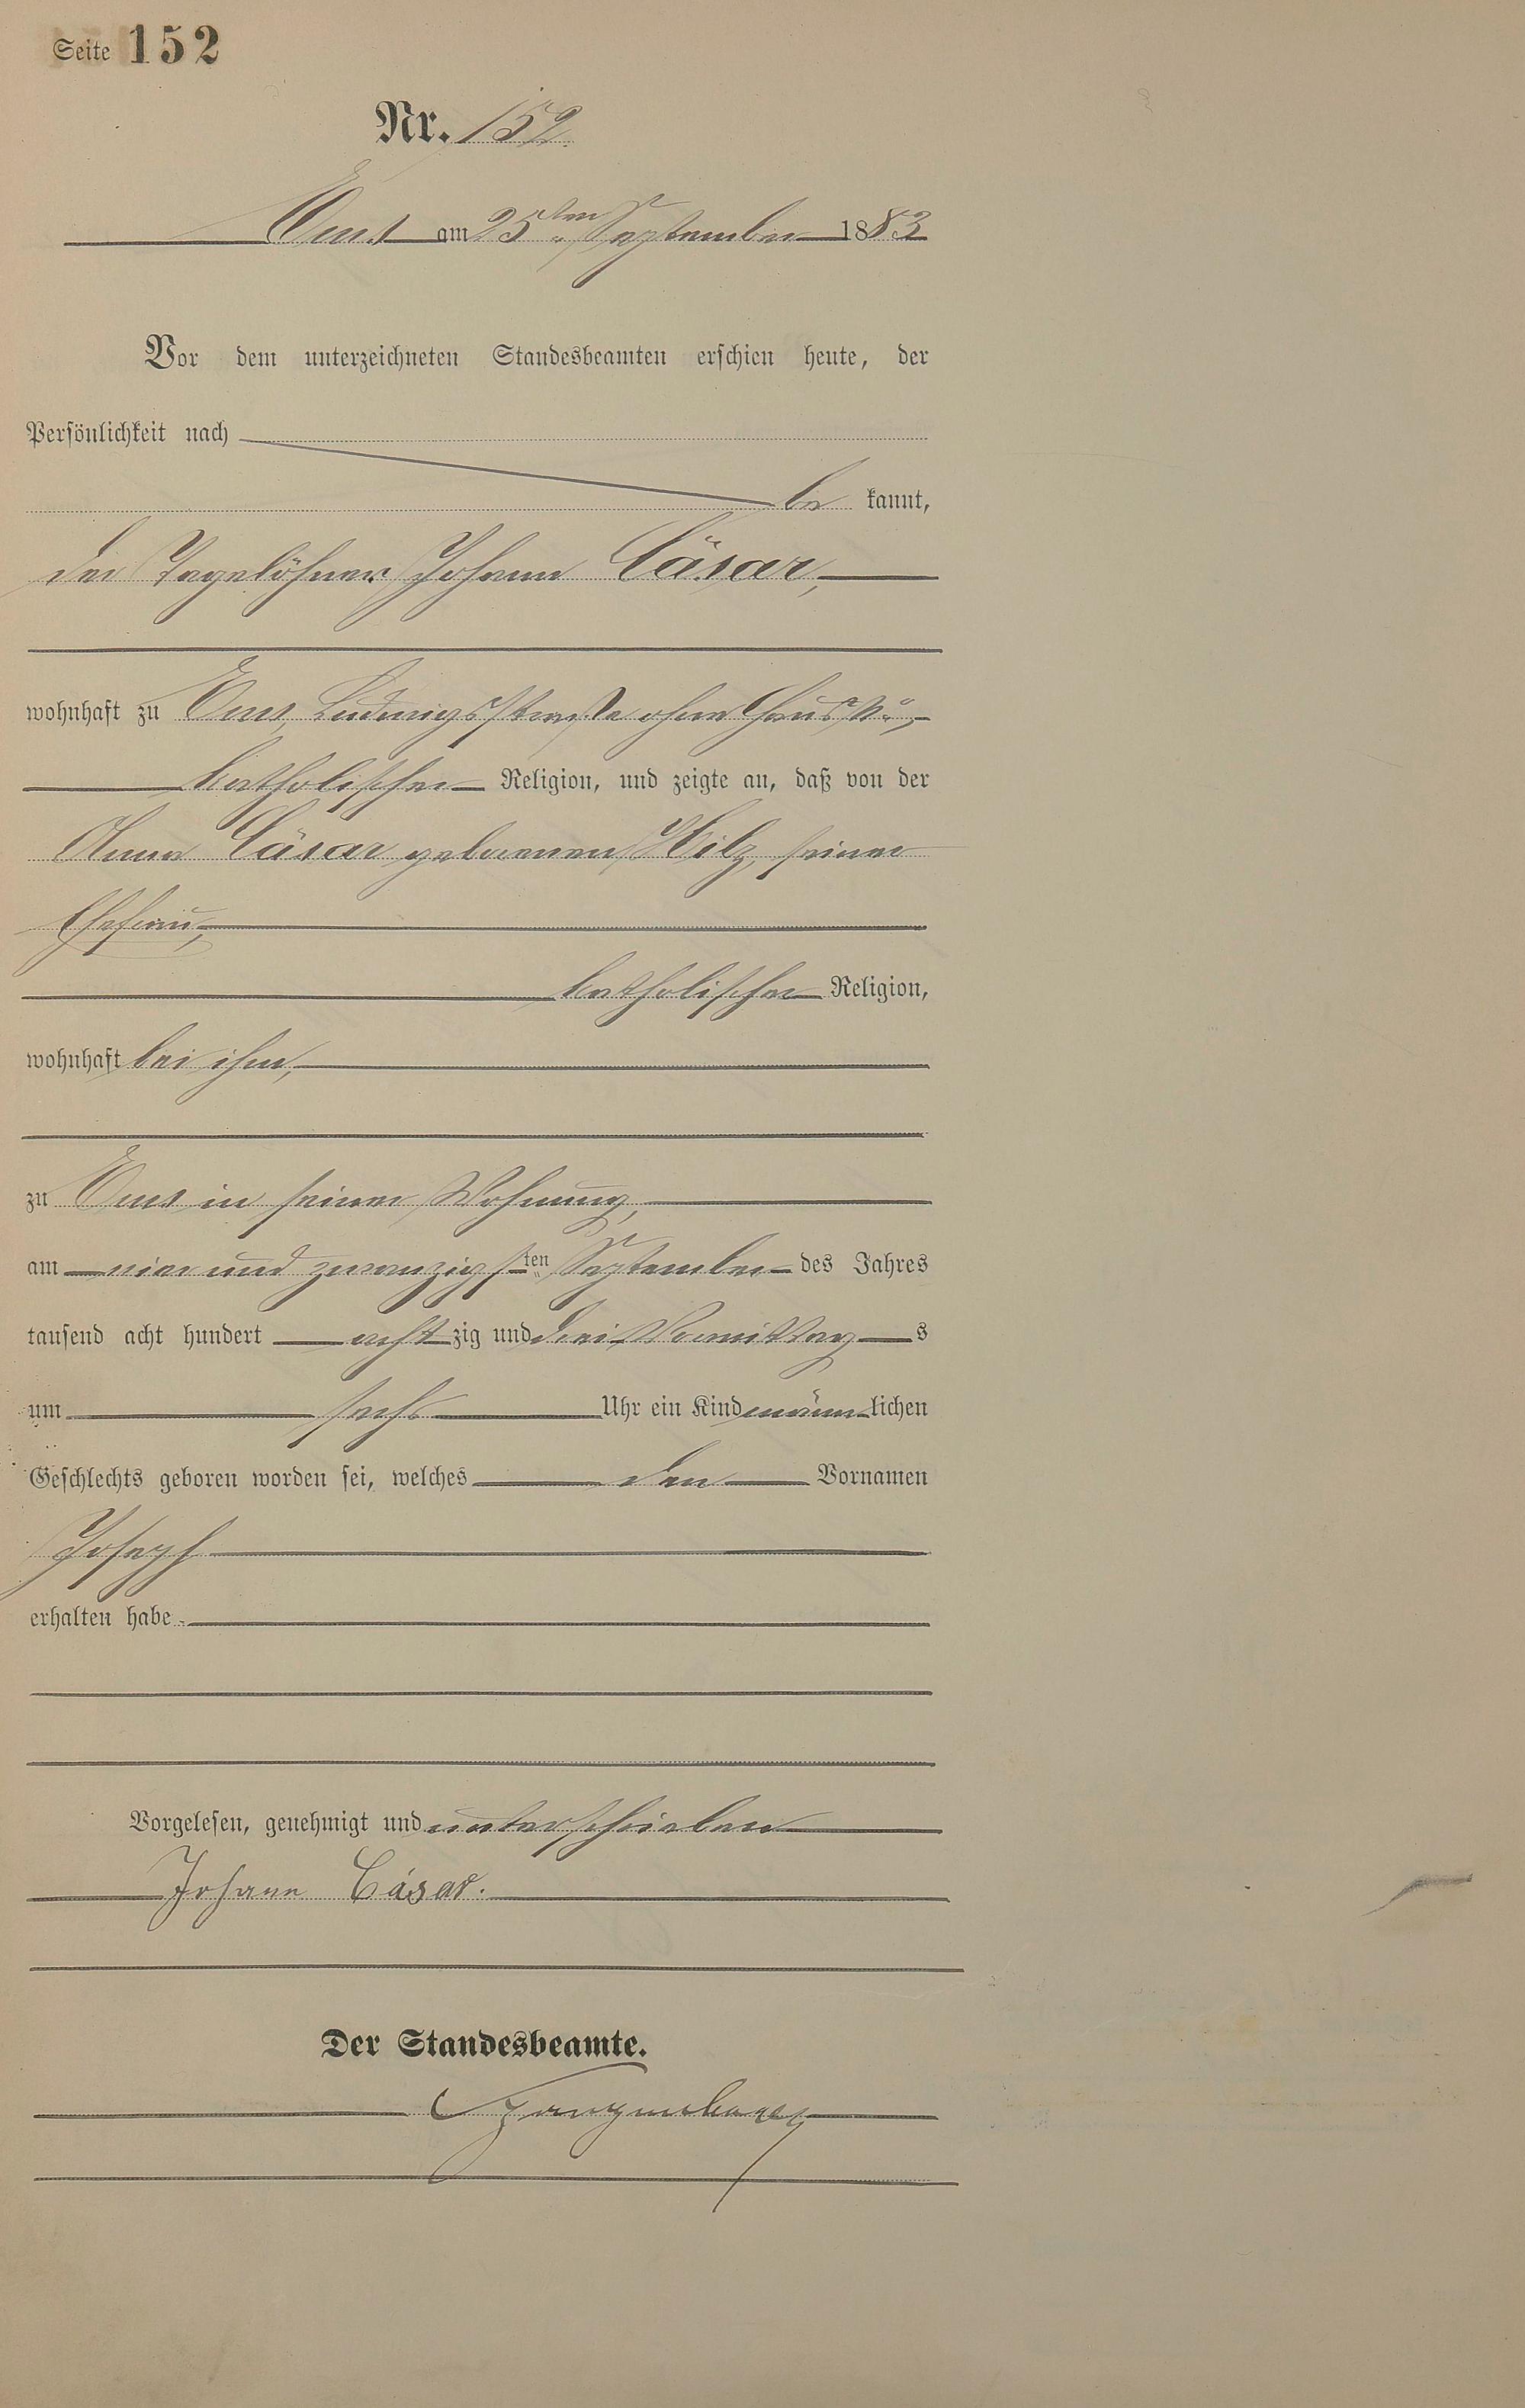 Seite 152
Nr. 152.
Ems am 25ten September 1883
Vor dem unterzeichneten Standesbeamten erschien heute, der
Persönlichkeit nach
be kannt,
der Tagelöhner Johann Cäsar,
wohnhaft zu Ems, Ludwigsstraße ohne Haus No,
katholischer Religion, und zeigte an, daß von der
Anna Cäsar geborenen Hilz, seiner
Ehefrau,
katholischer Religion,
wohnhaft bei ihm,
zu Ems in seiner Wohnung,
am vier und zwanzigsten September des Jahres
tausend acht hundert acht zig und drei Vormittag s
um sechs Uhr ein Kind männ lichen
Geschlechts geboren worden sei, welches den Vornamen
Joseph
erhalten habe.
Vorgelesen, genehmigt und unterschrieben
Johann Cäsar.
Der Standesbeamte.